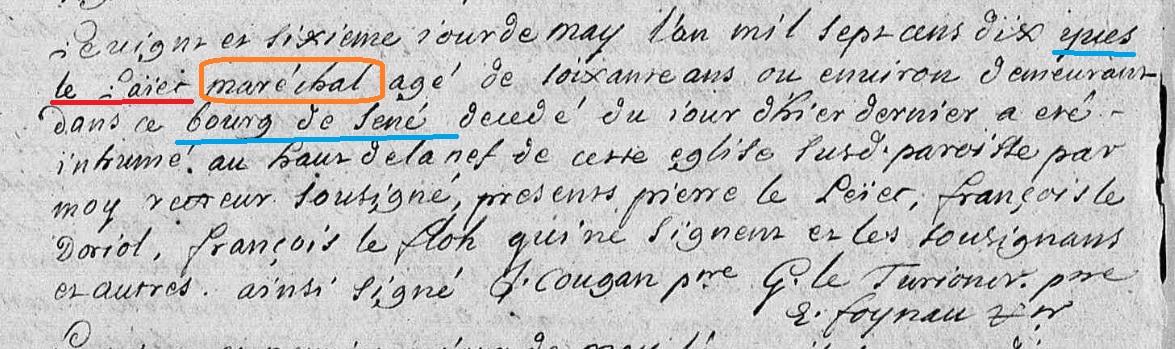 Le vignt et sixieme jour de may l'an mil sept cens dix yves
le Paiet maréchal agé de soixante ans ou environ demeurant
dans ce bourg de Sené decedé du jour d'hier dernier a eté
inhumé au haut de la nef de cette eglise susd. paroisse par
moy recteur sousigné, presents pierre le Leiec, françois le
Doriol, françois le floh qui ne signent et les sousignans
et autres. ainsi signé J. Cougan pre G. le Turioner. pre
E. foynau